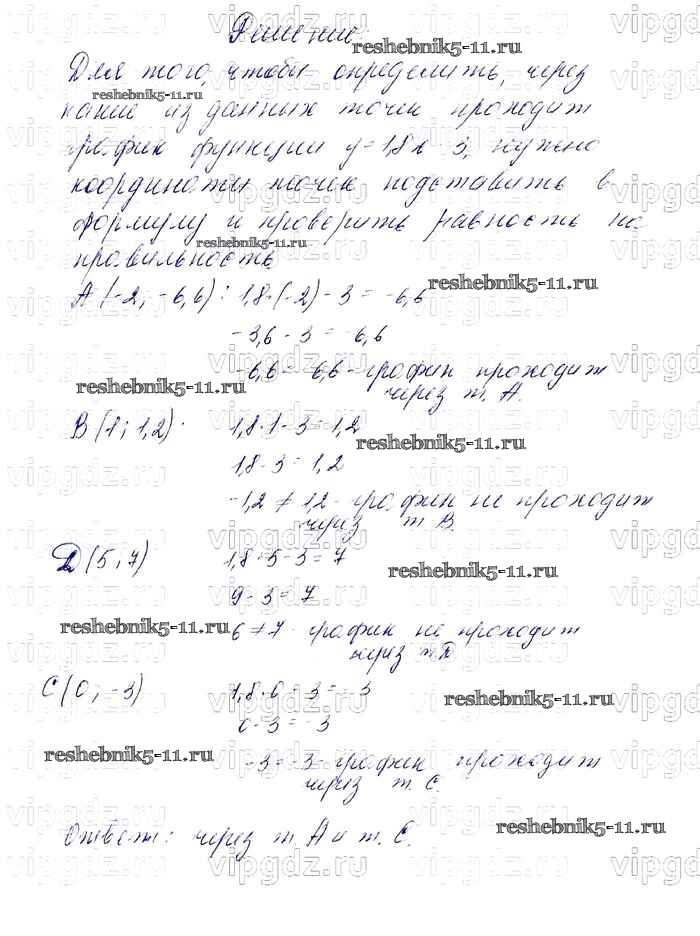 Решение:
reshebnik5-11.ru
Для того, чтобы определить, через
reshebnik5-11.ru
какие из данных точек проходит
график функции y=1,8x-3, нужно
координаты точек подставить в
формулу и проверить равность на
reshebnik5-11.ru
правильность
A(-2; -6,6): 1,8·(-2)-3=-6,6
reshebnik5-11.ru
-3,6-3=-6,6
-6,6=-6,6-график проходит
reshebnik5-11.ru
через т. А.
B(1; 1,2): 1,8·1-3=1,2
reshebnik5-11.ru
1,8-3=1,2
-1,2≠1,2-график не проходит
через т B.
Д(5; 7) 1,8·5-3=7
reshebnik5-11.ru
9-3=7
reshebnik5-11.ru
6≠7-график не проходит
через т.Д
C(0; -3) 1,8·0-3=-3
reshebnik5-11.ru
0-3=-3
reshebnik5-11.ru
-3=-3-график проходит
через т. С.
reshebnik5-11.ru
Ответ: через т. А и т. С.
vipgdz.ru